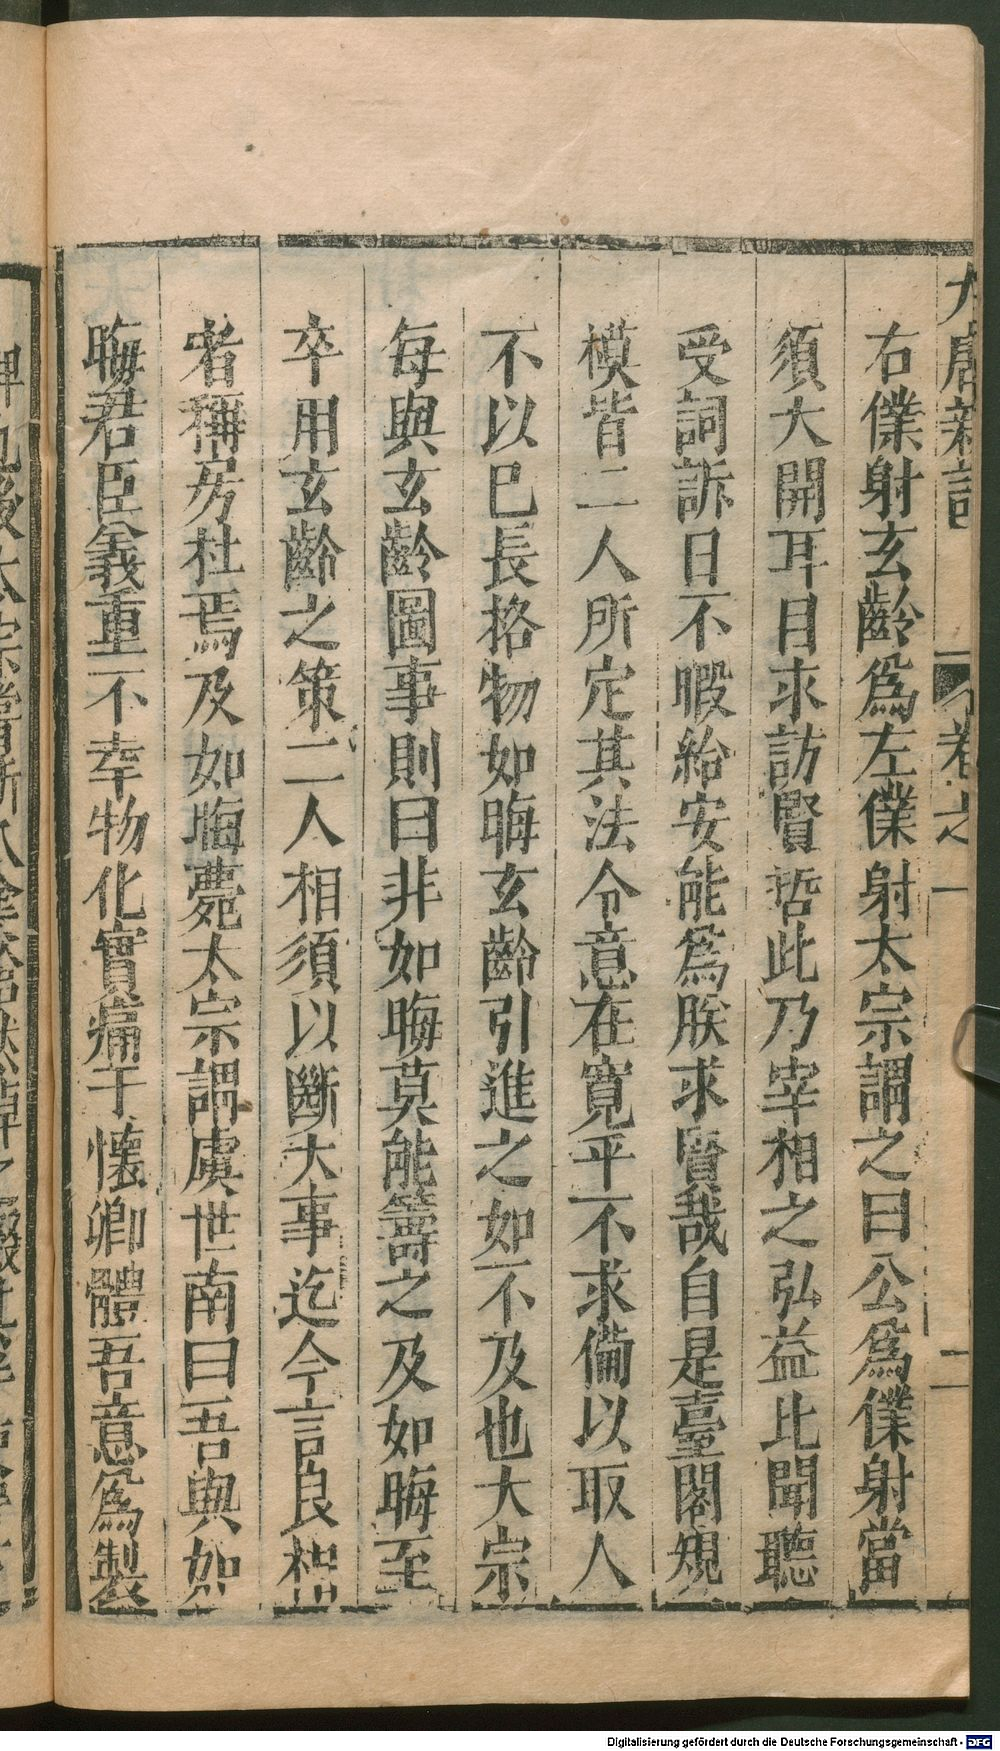 大唐新語 卷之一 二
右僕射玄齡爲左僕射太宗謂之曰公爲僕射當
須大開耳目求訪賢哲此乃宰相之弘益比聞聽
受詞訴日不暇給安能爲朕求賢哉自是臺閣規
模皆二人所定其法令意在寬平不求備以取人
不以已長格物如晦玄齡引進之如不及也大宗
每與玄齡圖事則曰非如晦莫能籌之及如晦至
卒用玄齡之策二人相須以斷大事迄今言良相
者稱房杜焉及如晦薨太宗謂虞世南曰吾與如
晦君臣義重不幸物化實痛于懷卿體吾意爲製
Digitalisierung gefördert durch die Deutsche Forschungsgemeinschaft - DFG